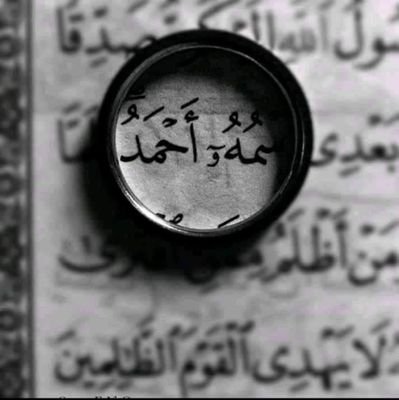 سُولُ ٱللَّهِ إِلَيْكُم مُّصَدِّقًا
بَعْدِى ٱسْمُهُۥٓ أَحْمَدُ
مَنْ أَظْلَمُ مِمَّنِ ٱفْتَرَىٰ
لَا يَهْدِى ٱلْقَوْمَ ٱلظَّٰلِمِينَ